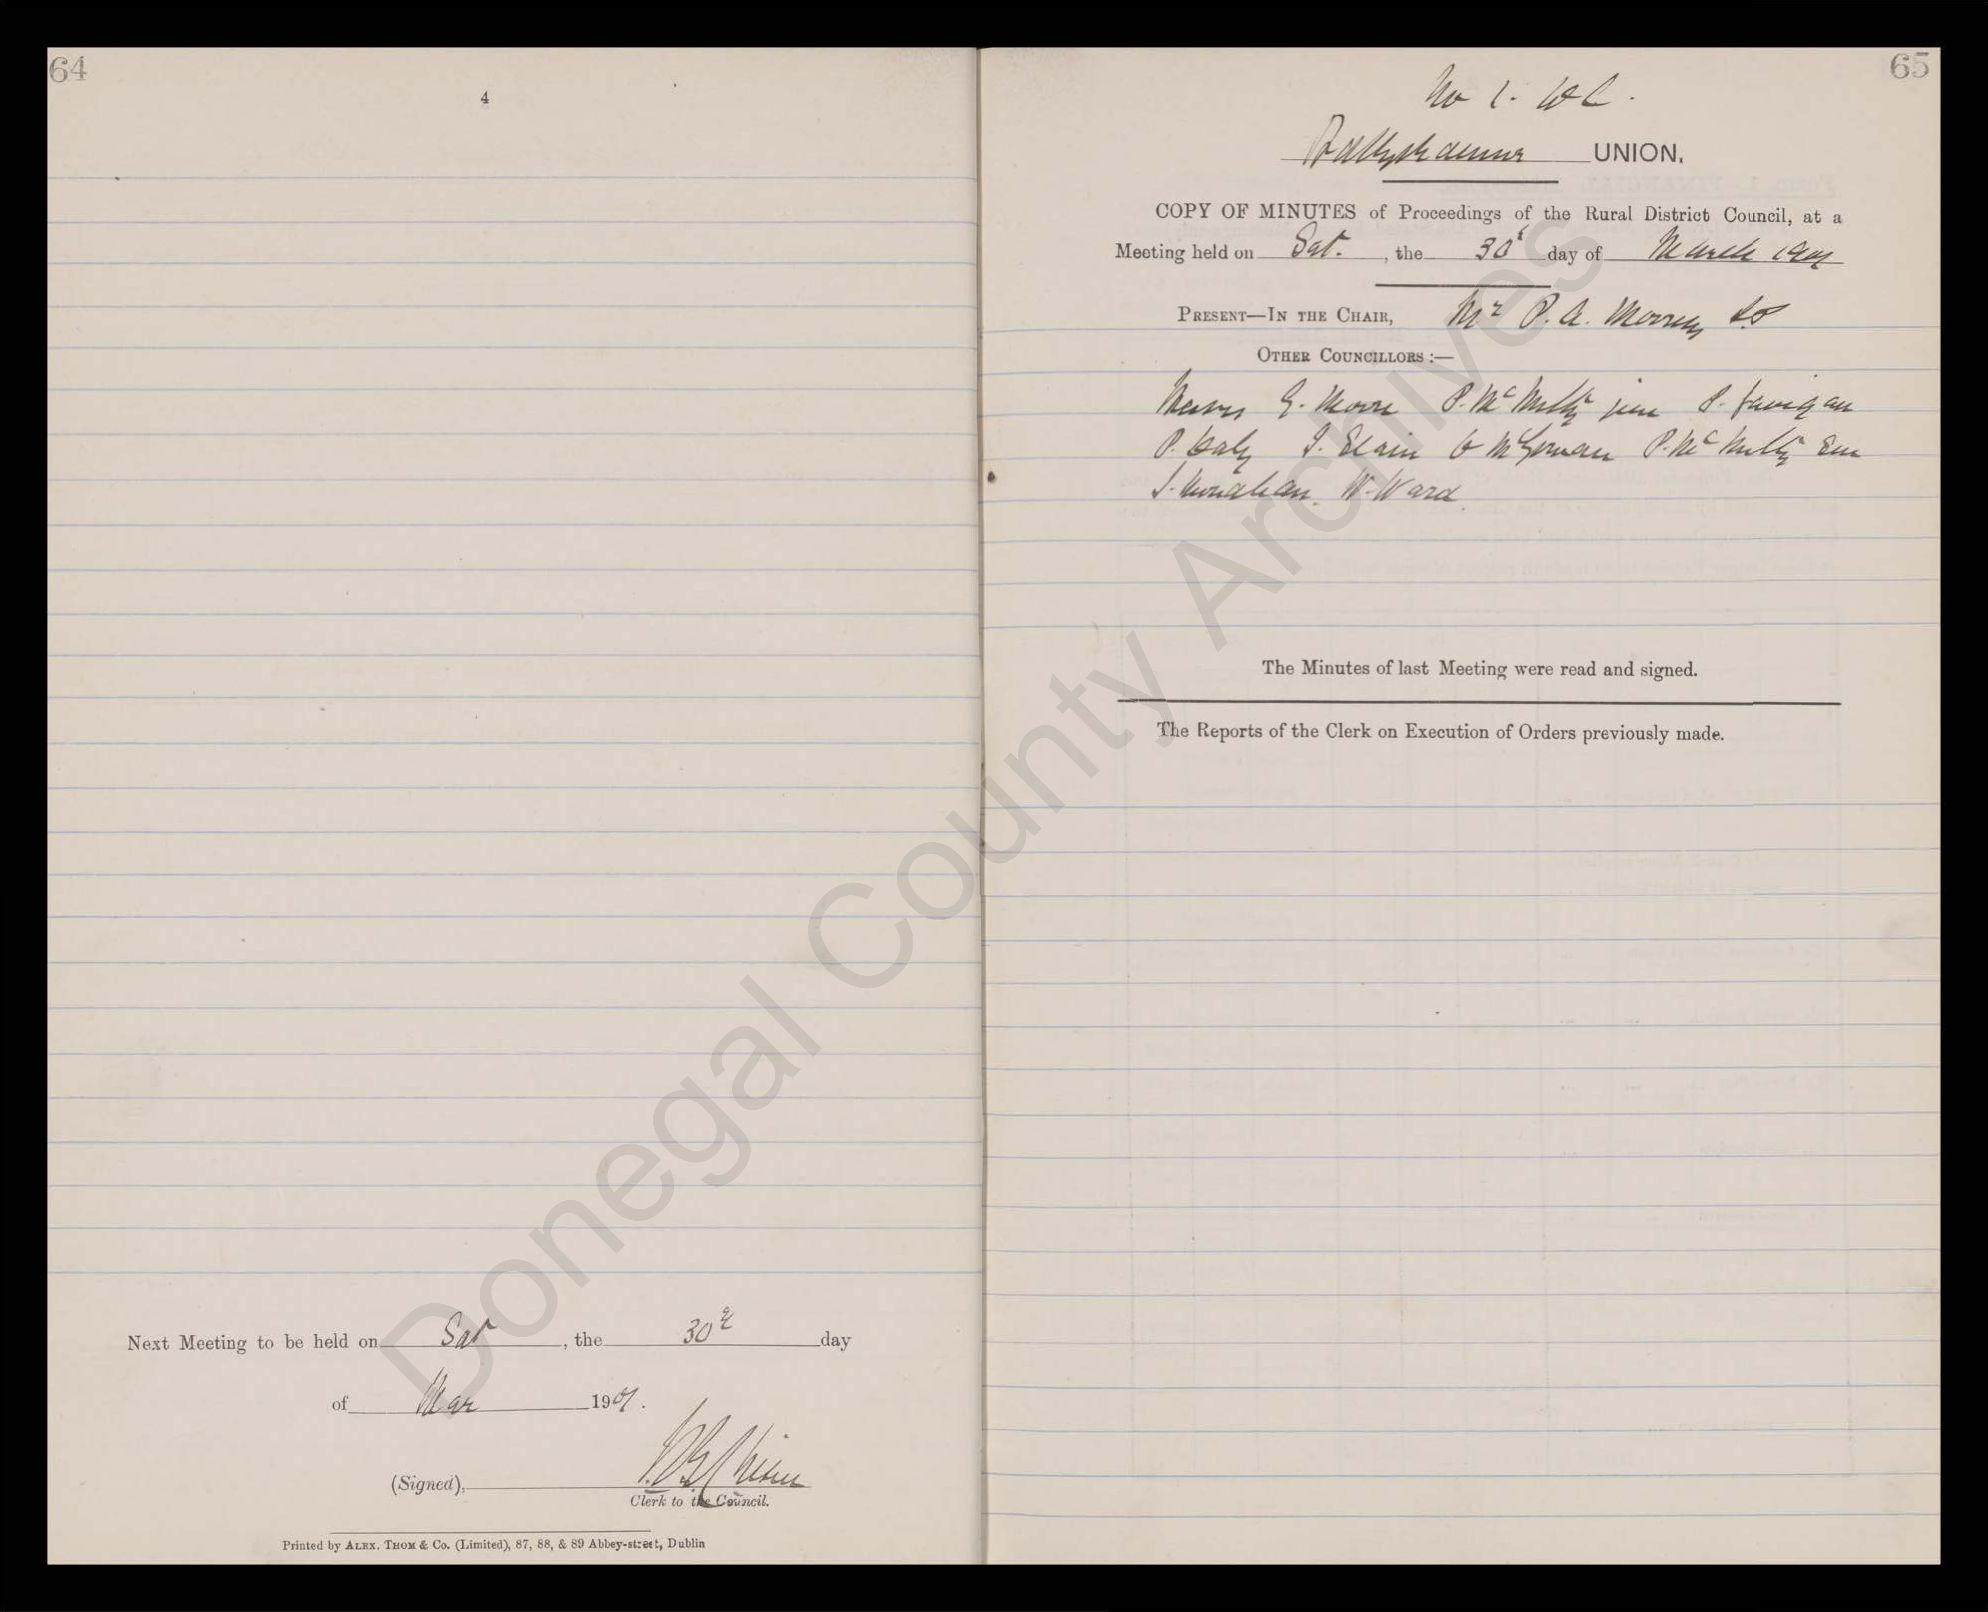 64
4
Next Meeting to be held on Sat, the 30th day
of Mar 1901.
(Signed),
Clerk to the Council.
Printed by ALEX. THOM & Co. (Limited), 87, 88, & 89 Abbey-street, Dublin
65
No 1.
Ballyshannon UNION.
COPY OF MINUTES of Proceedings of the Rural District Council, at a
Meeting held on Sat., the 30th day of March 1901
PRESENT—IN THE CHAIR, Mr P. A. Morrey
OTHER COUNCILLORS:—
Messrs G. Moore P. McNulty jun P. Gavigan
P. Daly J. Slain McGowan P. McNulty Sen
J. Monahan. W. Ward
The Minutes of last Meeting were read and signed.
The Reports of the Clerk on Execution of Orders previously made.
Donegal County Archives